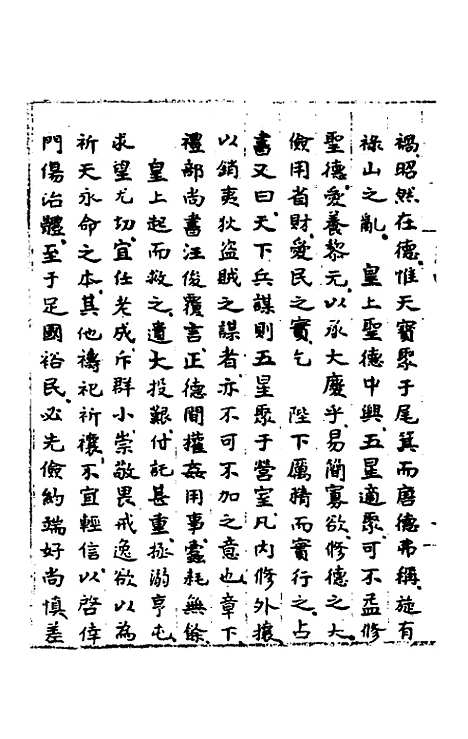 禍昭然在德惟天寶聚于尾箕而唐德弗稱旋有
祿山之亂　皇上聖德中興五星適聚可不益修
聖德愛養黎元以承大慶乎易簡寡欲修德之大
儉用省財愛民之實乞　陛下厲精而實行之占
書又曰天下兵謀則五星聚于營室凡內修外攘
以銷夷狄盜賊之謀者亦不可不加之意也章下
禮部尚書汪俊覆言正德間權姦用事蠹耗無餘
　皇上起而救之遺大投艱付託甚重拯溺亨屯
求望尤切宜任老成斥群小崇敬畏戒逸欲以為
祈天永命之本其他禱祀祈禳不宜輕信以啓倖
門傷治體至于足國裕民必先儉約端好尚慎差